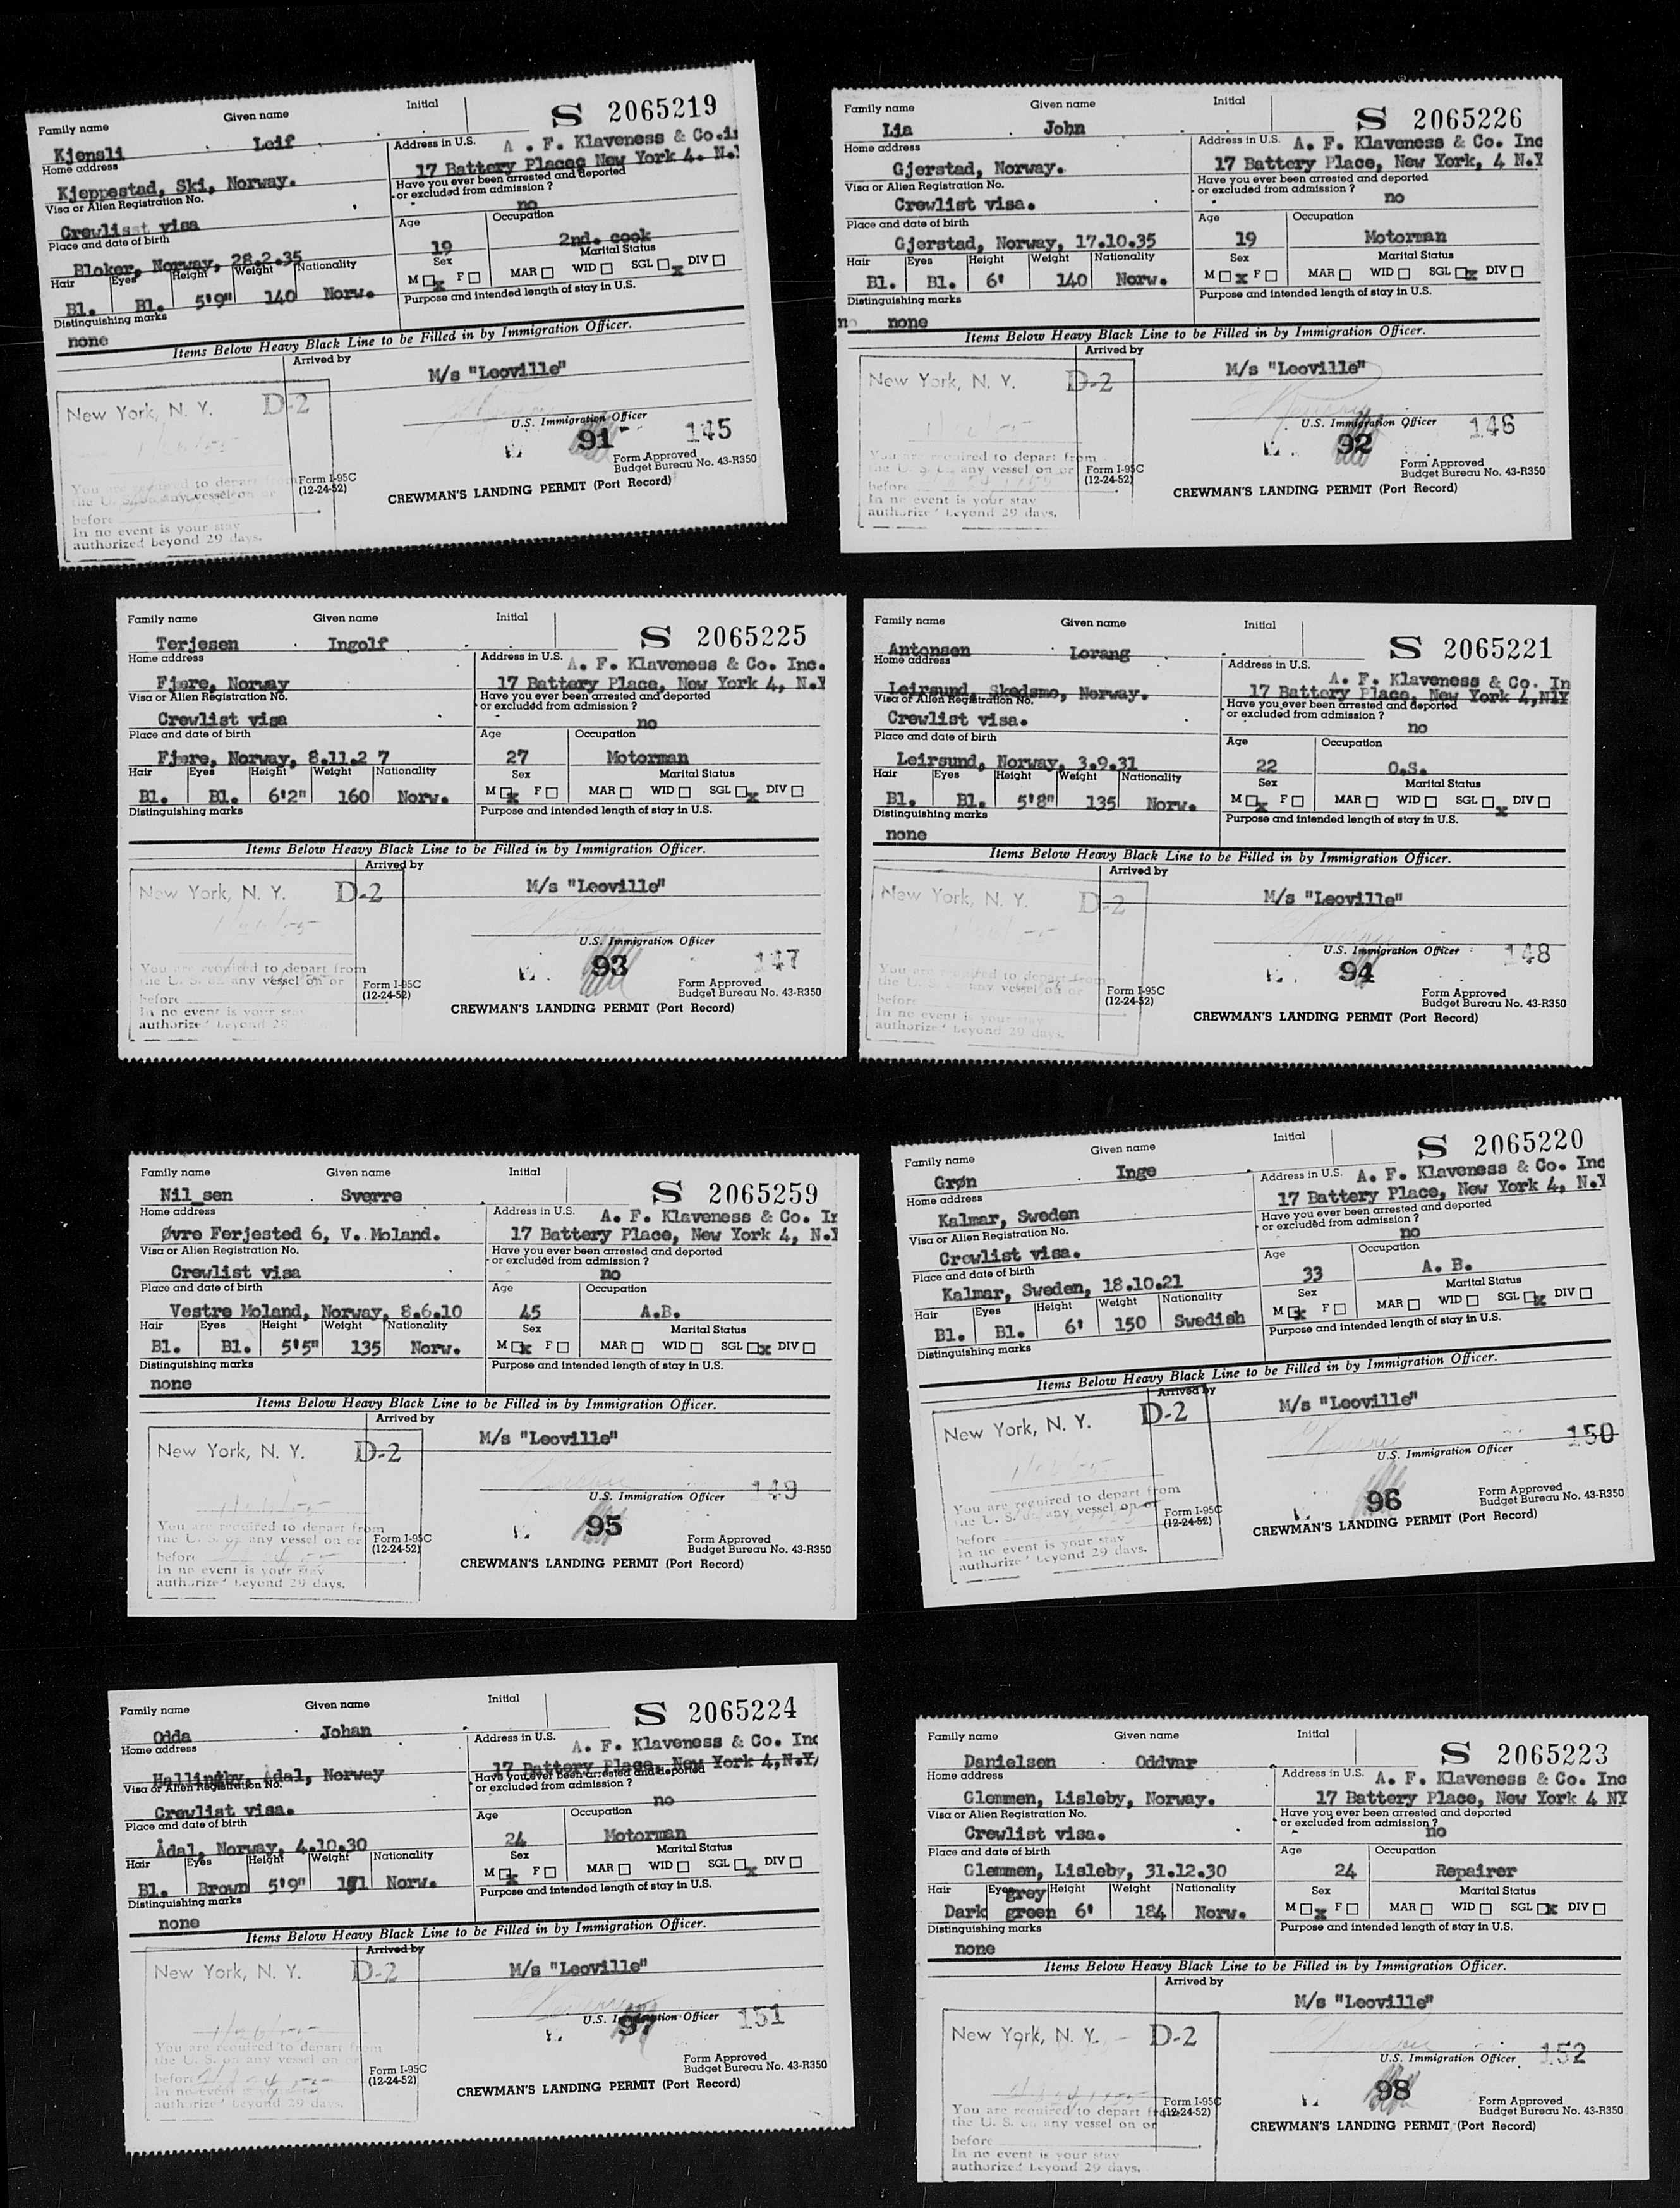 Family name Given name Initial S 2065219
Kjensli . Leif .
Home address Address in U.S. A . F. Klaveness & Co.
Kjeppestad, Ski, Norway. 17 Battery Place New York 4. N.
Visa or Alien Registration No. Have you ever been arrested and deported
or excluded from admission ?
Crewlisst visa no
Place and date of birth Age Occupation
Bloker, Norway, 28.2.35 19 2nd. cook
Hair Eyes Height Weight Nationality Sex Marital Status
Bl. Bl. 5'9" 140 Norw. M x F MAR WID SGL x DIV
Distinguishing marks Purpose and intended length of stay in U.S.
none
Items Below Heavy Black Line to be Filled in by Immigration Officer.
Arrived by
M/s "Leoville"
New York, N. Y. D-2
U.S. Immigration Officer
91 145
You are required to depart from
the U. S. on any vessel on or
before
In no event is your stay
authorized beyond 29 days.
Form I-95C
(12-24-52)
Form Approved
Budget Bureau No. 43-R350
CREWMAN'S LANDING PERMIT (Port Record)
Family name Given name Initial S 2065226
Lia . John .
Home address Address in U.S. A. F. Klaveness & Co. Inc
Gjerstad, Norway. 17 Battery Place, New York, 4 N.Y
Visa or Alien Registration No. Have you ever been arrested and deported
or excluded from admission ?
Crewlist visa. no
Place and date of birth Age Occupation
Gjerstad, Norway, 17.10.35 19 Motorman
Hair Eyes Height Weight Nationality Sex Marital Status
Bl. Bl. 6' 140 Norw. M x F MAR WID SGL x DIV
Distinguishing marks Purpose and intended length of stay in U.S.
no none
Items Below Heavy Black Line to be Filled in by Immigration Officer.
Arrived by
M/s "Leoville"
New York, N. Y. D-2
U.S. Immigration Officer
92 146
You are required to depart from
the U. S. on any vessel on or
before
In no event is your stay
authorized beyond 29 days.
Form I-95C
(12-24-52)
Form Approved
Budget Bureau No. 43-R350
CREWMAN'S LANDING PERMIT (Port Record)
Family name Given name Initial S 2065225
Terjesen . Ingolf .
Home address Address in U.S. A. F. Klaveness & Co. Inc.
Fjære, Norway 17 Battery Place, New York 4, N.Y
Visa or Alien Registration No. Have you ever been arrested and deported
or excluded from admission ?
Crewlist visa no
Place and date of birth Age Occupation
Fjære, Norway, 8.11.2 7 27 Motorman
Hair Eyes Height Weight Nationality Sex Marital Status
Bl. Bl. 6'2" 160 Norw. M x F MAR WID SGL x DIV
Distinguishing marks Purpose and intended length of stay in U.S.
Items Below Heavy Black Line to be Filled in by Immigration Officer.
Arrived by
M/s "Leoville"
New York, N. Y. D-2
1/26/55
U.S. Immigration Officer
93 147
You are required to depart from
the U. S. on any vessel on or
before
In no event is your stay
authorized beyond 29
Form I-95C
(12-24-52)
Form Approved
Budget Bureau No. 43-R350
CREWMAN'S LANDING PERMIT (Port Record)
Family name Given name Initial S 2065221
Antonsen . Lorang .
Home address Address in U.S. A. F. Klaveness & Co. In
Leirsund, Skedsmo, Norway. 17 Battery Place, New York 4,NIY
Visa or Alien Registration No. Have you ever been arrested and deported
or excluded from admission ?
Crewlist visa. no
Place and date of birth Age Occupation
Leirsund, Norway, 3.9.31 22 O.S.
Hair Eyes Height Weight Nationality Sex Marital Status
Bl. Bl. 5'8" 135 Norw. M x F MAR WID SGL x DIV
Distinguishing marks Purpose and intended length of stay in U.S.
none
Items Below Heavy Black Line to be Filled in by Immigration Officer.
Arrived by
M/s "Leoville"
New York, N. Y. D-2
U.S. Immigration Officer
94 148
You are required to depart from
the U. S. on any vessel on or
before
In no event is your stay
authorized beyond 29 days.
Form I-95C
(12-24-52)
Form Approved
Budget Bureau No. 43-R350
CREWMAN'S LANDING PERMIT (Port Record)
Family name Given name Initial S 2065259
Nil sen . Sverre .
Home address Address in U.S. A. F. Klaveness & Co. In
Øvre Ferjested 6, V. Moland. 17 Battery Place, New York 4, N.Y
Visa or Alien Registration No. Have you ever been arrested and deported
or excluded from admission ?
Crewlist visa no
Place and date of birth Age Occupation
Vestre Moland, Norway, 8.6.10 45 A.B.
Hair Eyes Height Weight Nationality Sex Marital Status
Bl. Bl. 5'5" 135 Norw. M x F MAR WID SGL x DIV
Distinguishing marks Purpose and intended length of stay in U.S.
none
Items Below Heavy Black Line to be Filled in by Immigration Officer.
Arrived by
M/s "Leoville"
New York, N. Y. D-2
1/26/55
U.S. Immigration Officer
95 149
You are required to depart from
the U. S. on any vessel on or
before
In no event is your stay
authorized beyond 29 days.
Form I-95C
(12-24-52)
Form Approved
Budget Bureau No. 43-R350
CREWMAN'S LANDING PERMIT (Port Record)
Family name Given name Initial S 2065220
Grøn Inge .
Home address Address in U.S. A. F. Klaveness & Co. Inc
Kalmar, Sweden 17 Battery Place, New York 4, N.Y
Visa or Alien Registration No. Have you ever been arrested and deported
or excluded from admission ?
Crewlist visa. no
Place and date of birth Age Occupation
Kalmar, Sweden, 18.10.21 33 A. B.
Hair Eyes Height Weight Nationality Sex Marital Status
Bl. Bl. 6' 150 Swedish M x F MAR WID SGL x DIV
Distinguishing marks Purpose and intended length of stay in U.S.
Items Below Heavy Black Line to be Filled in by Immigration Officer.
Arrived by
M/s "Leoville"
New York, N. Y. D-2
1/26/55
U.S. Immigration Officer
96 150
You are required to depart from
the U. S. on any vessel on or
before
In no event is your stay
authorized beyond 29 days.
Form I-95C
(12-24-52)
Form Approved
Budget Bureau No. 43-R350
CREWMAN'S LANDING PERMIT (Port Record)
Family name Given name Initial S 2065224
Odda . Johan .
Home address Address in U.S. A. F. Klaveness & Co. Inc
Hallingby, Ådal, Norway 17 Battery Place, New York 4,N.Y/
Visa or Alien Registration No. Have you ever been arrested and deported
or excluded from admission ?
Crewlist visa. no
Place and date of birth Age Occupation
Ådal, Norway, 4.10.30 24 Motorman
Hair Eyes Height Weight Nationality Sex Marital Status
Bl. Brown 5'9" Norw. M x F MAR WID SGL x DIV
Distinguishing marks Purpose and intended length of stay in U.S.
none
Items Below Heavy Black Line to be Filled in by Immigration Officer.
Arrived by
M/s "Leoville"
New York, N. Y. D-2
1/26/55
U.S. Immigration Officer
97 151
You are required to depart from
the U. S. on any vessel on or
before
In no event is your stay
authorized beyond 29 days.
Form I-95C
(12-24-52)
Form Approved
Budget Bureau No. 43-R350
CREWMAN'S LANDING PERMIT (Port Record)
Family name Given name Initial S 2065223
Danielsen . Oddvar
Home address Address in U.S. A. F. Klaveness & Co. Inc
Glemmen, Lisleby, Norway. 17 Battery Place, New York 4 NY
Visa or Alien Registration No. Have you ever been arrested and deported
or excluded from admission ?
Crewlist visa. no
Place and date of birth Age Occupation
Glemmen, Lisleby, 31.12.30 24 Repairer
Hair Eyes Height Weight Nationality Sex Marital Status
Dark grey green 6' 184 Norw. M x F MAR WID SGL x DIV
Distinguishing marks Purpose and intended length of stay in U.S.
none
Items Below Heavy Black Line to be Filled in by Immigration Officer.
Arrived by
M/s "Leoville"
New York, N. Y. D-2
U.S. Immigration Officer
98 152
You are required to depart from
the U. S. on any vessel on or
before
In no event is your stay
authorized beyond 29 days.
Form I-95C
(12-24-52)
Form Approved
Budget Bureau No. 43-R350
CREWMAN'S LANDING PERMIT (Port Record)